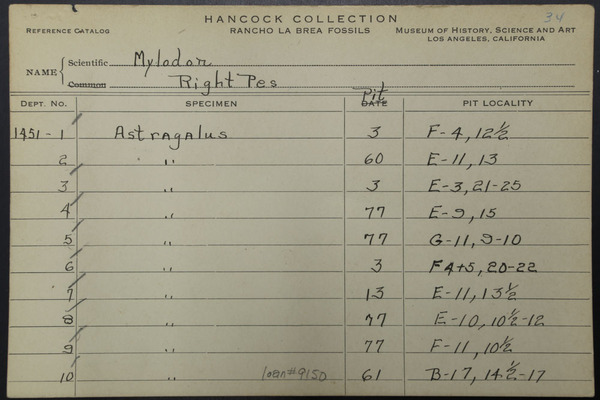 HANCOCK COLLECTION 34
REFERENCE CATALOG RANCHO LA BREA FOSSILS MUSEUM OF HISTORY, SCIENCE AND ART
LOS ANGELES, CALIFORNIA
NAME { Scientific Mylodon
Common Right Pes
DEPT. NO. SPECIMEN DATE Pit PIT LOCALITY
1451-1 Astragalus 3 F-4, 12½
2 " 60 E-11, 13
3 " 3 E-3, 21-25
4 " 77 E-9, 15
5 " 77 G-11, 9-10
6 " 3 F4+5, 20-22
7 " 13 E-11, 13½
8 " 77 E-10, 10½-12
9 " 77 F-11, 10½
10 " loan#9150 61 B-17, 14½-17